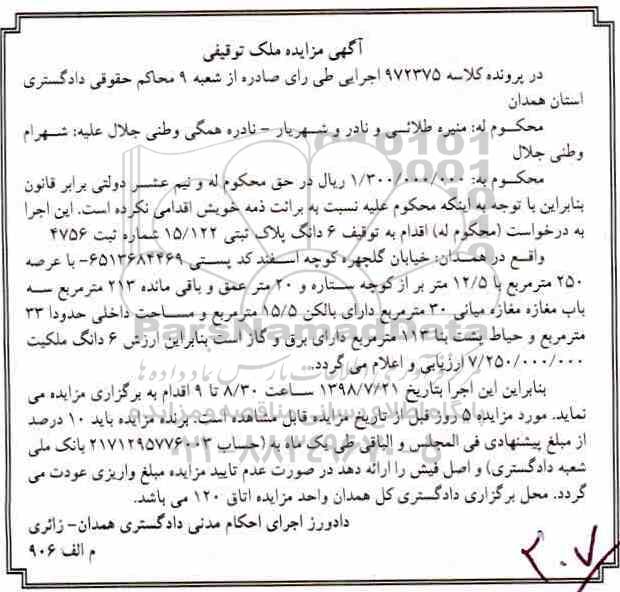 آگهی مزایده ملک توقیفی
در پرونده کلاسه ۹۷۲۳۷۵ اجرایی طی رای صادره از شعبه ۹ محاکم حقوقی دادگستری
استان همدان
محکوم له: منیره طلائی و نادر و شهریار - نادره همگی وطنی جلال علیه: شهرام
وطنی جلال
محکوم به: ۱/۳۰۰/۰۰۰/۰۰۰ ریال در حق محکوم له و نیم عشر دولتی برابر قانون
بنابراین با توجه به اینکه محکوم علیه نسبت به برائت ذمه خویش اقدامی نکرده است. این اجرا
به درخواست (محکوم له) اقدام به توقیف ۶ دانگ پلاک ثبتی ۱۵/۱۲۲ شماره ثبت ۴۷۵۶
واقع در همدان: خیابان گلچهره کوچه اسفند کد پستی ۶۵۱۳۶۸۴۴۶۹- با عرصه
۲۵۰ مترمربع با ۱۲/۵ متر بر از کوچه ستاره و ۲۰ متر عمق و باقی مانده ۲۱۳ مترمربع سه
باب مغازه مغازه میانی ۳۰ مترمربع دارای بالکن ۱۵/۵ مترمربع و مساحت داخلی حدودا ۳۳
مترمربع و حیاط پشت بنا ۱۱۳ مترمربع دارای برق و گاز است بنابراین ارزش ۶ دانگ ملکیت
۷/۲۵۰/۰۰۰/۰۰۰ ارزیابی و اعلام می گردد.
بنابراین این اجرا بتاریخ ۱۳۹۸/۷/۲۱ ساعت ۸/۳۰ تا ۹ اقدام به برگزاری مزایده می
نماید. مورد مزایده ۵ روز قبل از تاریخ مزایده قابل مشاهده است. برنده مزایده باید ۱۰ درصد
از مبلغ پیشنهادی فی المجلس و الباقی طی یک ماه به (حساب ۲۱۷۱۲۹۵۷۷۶۰۰۳ بانک ملی
شعبه دادگستری) و اصل فیش را ارائه دهد در صورت عدم تایید مزایده مبلغ واریزی عودت می
گردد. محل برگزاری دادگستری کل همدان واحد مزایده اتاق ۱۲۰ می باشد.
دادورز اجرای احکام مدنی دادگستری همدان- زائری
م الف ۹۰۶
۲۰۷
ParsNamadData
۰۲۱-۸۸۳۴۹۶۷۰-۵